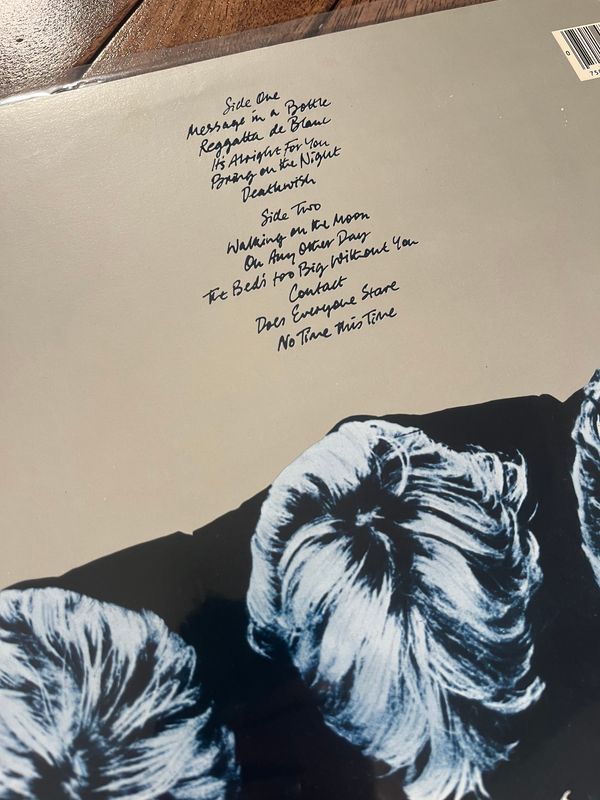 Side One
Message in a Bottle
Reggatta de Blanc
Its Alright For You
Bring on the Night
Deathwish
Side Two
Walking on the Moon
On Any Other Day
The Bed's too Big Without You
Contact
Does Everyone Stare
No Time this Time
0